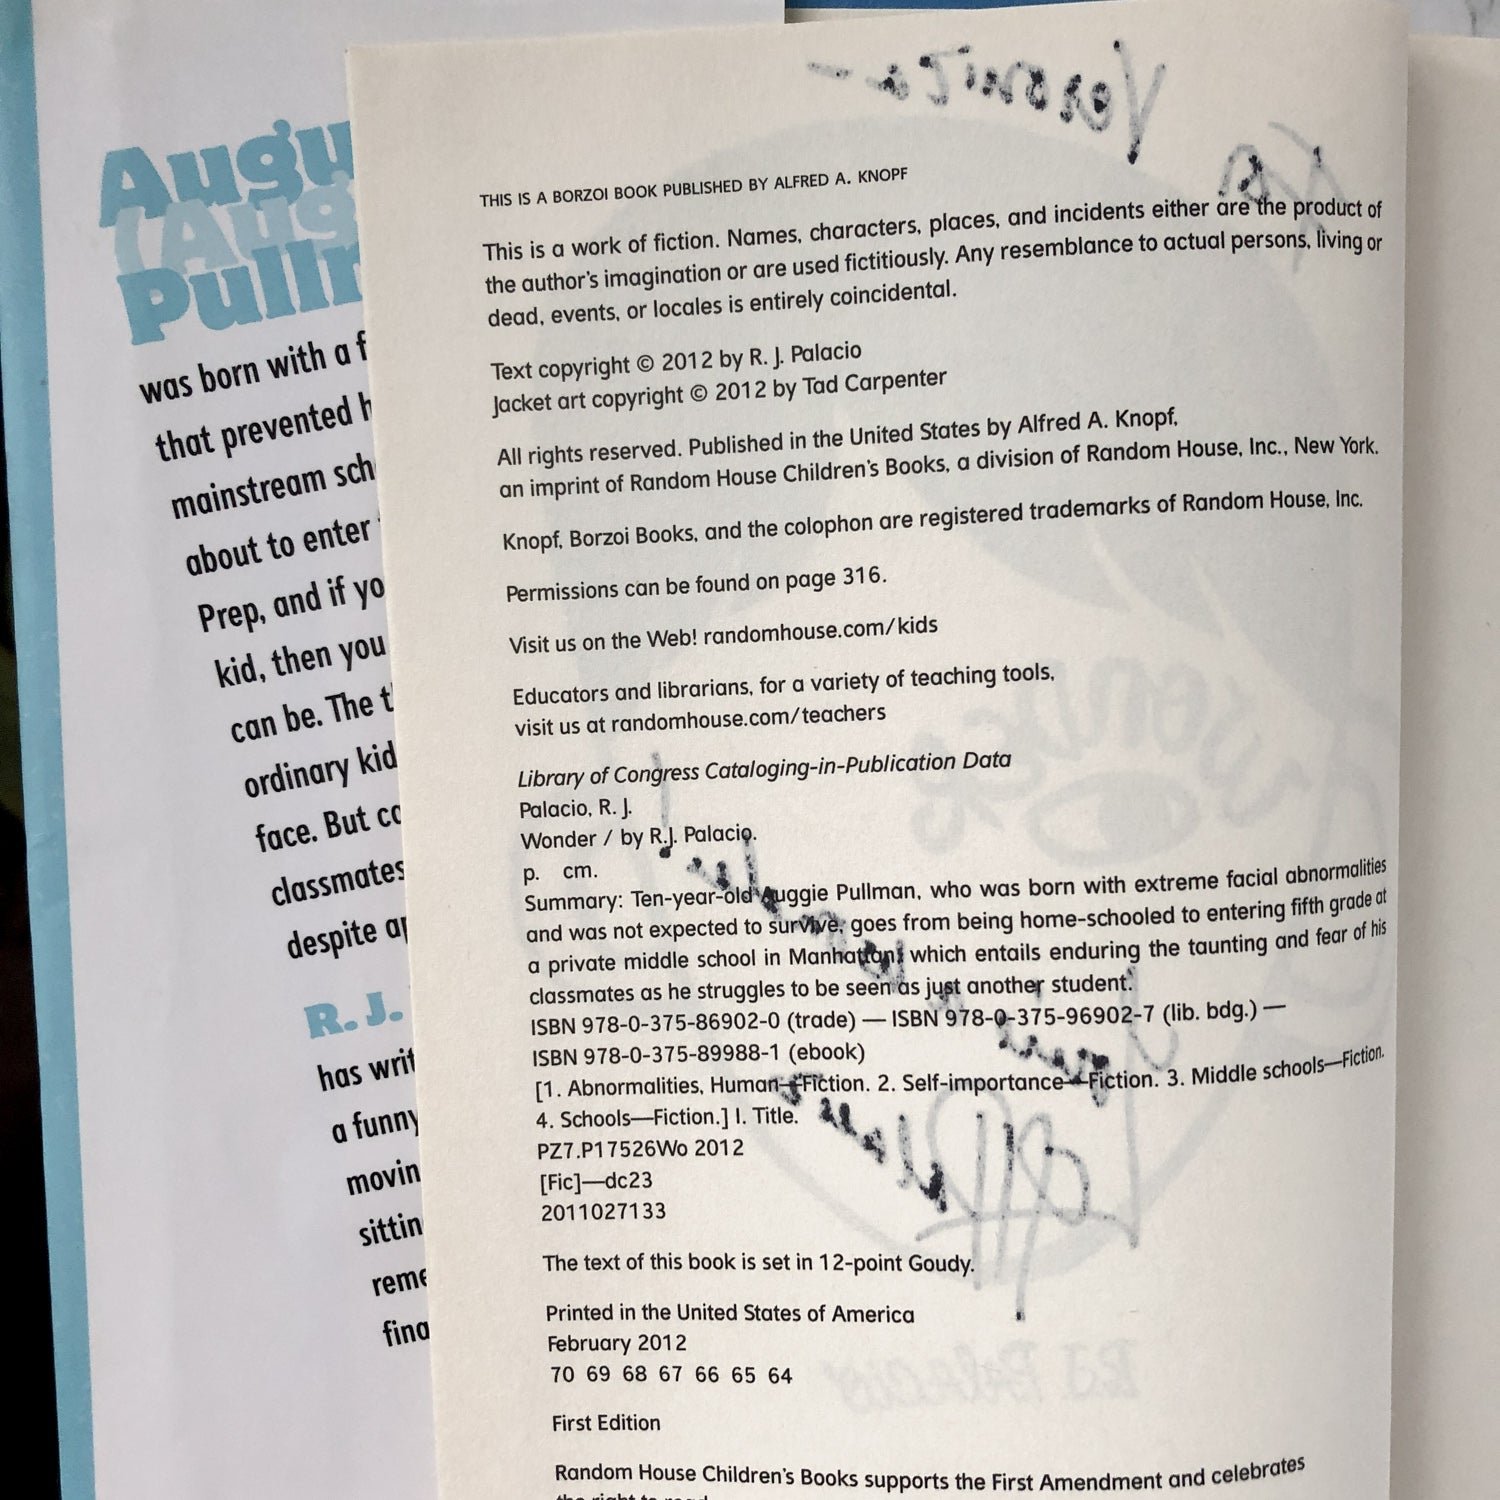 was born with a f
that prevented h
mainstream sch
about to enter
Prep, and if yo
kid, then you
can be. The t
ordinary kid
face. But co
classmates
despite ap
R. J.
has writ
a funny
movin
sittin
reme
fina
THIS IS A BORZOI BOOK PUBLISHED BY ALFRED A. KNOPF
This is a work of fiction. Names, characters, places, and incidents either are the product of
the author's imagination or are used fictitiously. Any resemblance to actual persons, living or
dead, events, or locales is entirely coincidental.
Text copyright © 2012 by R. J. Palacio
Jacket art copyright © 2012 by Tad Carpenter
All rights reserved. Published in the United States by Alfred A. Knopf,
an imprint of Random House Children's Books, a division of Random House, Inc., New York.
Knopf, Borzoi Books, and the colophon are registered trademarks of Random House, Inc.
Permissions can be found on page 316.
Visit us on the Web! randomhouse.com/kids
Educators and librarians, for a variety of teaching tools,
visit us at randomhouse.com/teachers
Library of Congress Cataloging-in-Publication Data
Palacio, R. J.
Wonder / by R.J. Palacio.
p. cm.
Summary: Ten-year-old Auggie Pullman, who was born with extreme facial abnormalities
and was not expected to survive, goes from being home-schooled to entering fifth grade at
a private middle school in Manhattan, which entails enduring the taunting and fear of his
classmates as he struggles to be seen as just another student.
ISBN 978-0-375-86902-0 (trade) — ISBN 978-0-375-96902-7 (lib. bdg.) —
ISBN 978-0-375-89988-1 (ebook)
[1. Abnormalities, Human—Fiction. 2. Self-importance—Fiction. 3. Middle schools—Fiction.
4. Schools—Fiction.] I. Title.
PZ7.P17526Wo 2012
[Fic]—dc23
2011027133
The text of this book is set in 12-point Goudy.
Printed in the United States of America
February 2012
70 69 68 67 66 65 64
First Edition
Random House Children's Books supports the First Amendment and celebrates
the right to read.